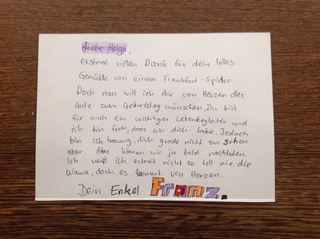 Liebe Helga,
erstmal vielen Dank für dein tolles
Gemälde von einem Frankfurt-Spider.
Doch nun will ich dir von Herzen alles
Gute zum Geburtstag wünschen. Du bist
für mich ein wichtiger Lebensbegleiter und
ich bin froh, dass ich dich habe. Jedoch
bin ich traurig, dich grade nicht zu sehen
aber dies können wir ja bald nachholen.
Ich weiß ich schreib nicht so toll wie die
doch es kommt von Herzen.
Dein Enkel Franz.